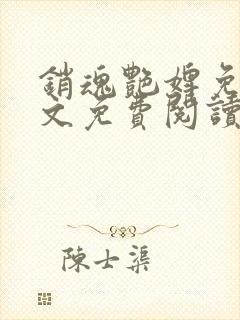 銷魂艷婢免
文免費閱讀
陳士渠